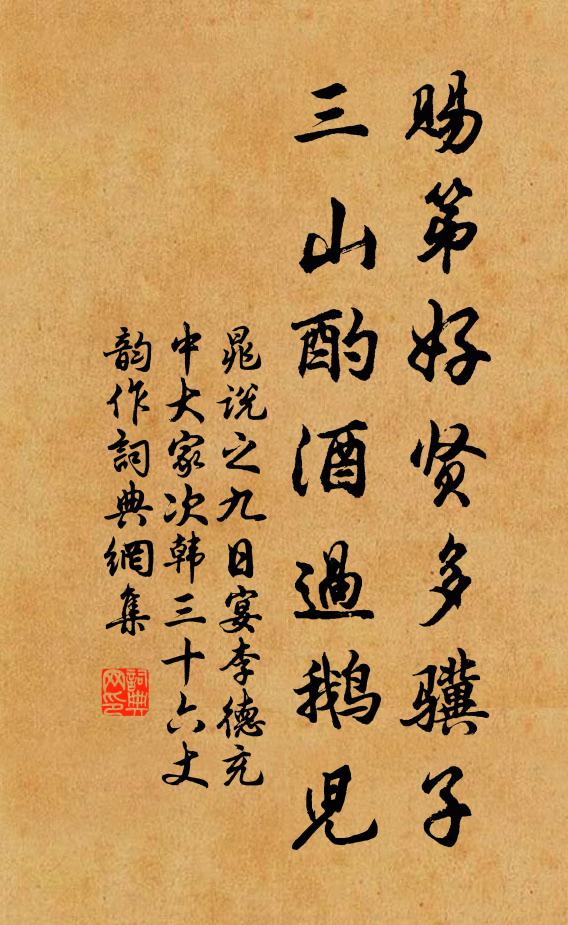 赐第好贤多骥子
三山酌酒過鹅児
晁说之九日宴李德充
中大家次韩三十六丈
韵作詞典網集
詞典网印